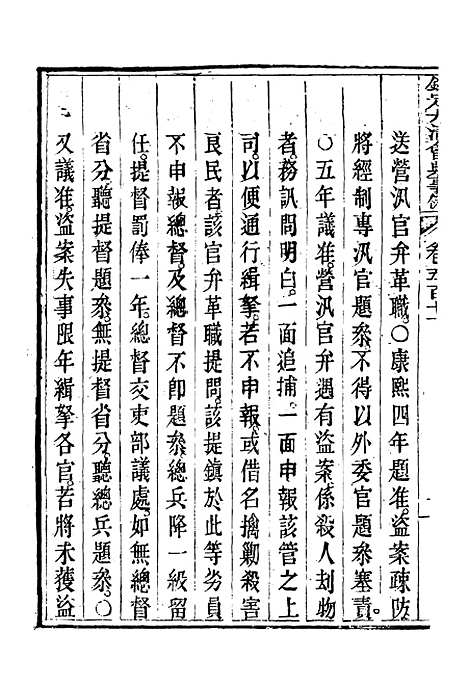 欽定大清會典事例 卷五百
送營汛官弁革職。○康熙四年題准。盜案疎防
將經制專汛官題參。不得以外委官題參塞責。
○五年議准。營汛官弁遇有盜案。係殺人刦物
者。務訊問明白。一面追捕。一面申報該管之上
司。以便通行緝拏。若不申報。或借名擒勦殺害
良民者。該官弁革職提問。該提鎮於此等劣員
不申報總督。及總督不卽題參。總兵降一級留
任。提督罰俸一年。總督交吏部議處。如無總督
省分。聽提督題參。無提督省分。聽總兵題參。○
又議准。盜案失事限年緝拏各官。若將未獲盜